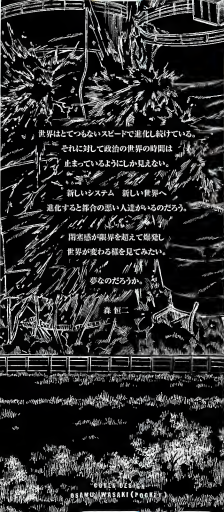 世界はとてつもないスピードで進化し続けている。
それに対して政治の世界の時間は
止まっているようにしか見えない。
新しいシステム　新しい世界へ
進化すると都合の悪い人達がいるのだろう。
閉塞感が限界を超えて爆発し
世界が変わる様を見てみたい。
夢なのだろうか。
森 恒二
COVER DESIGN
OSAMU IWASAKI(POCKET)